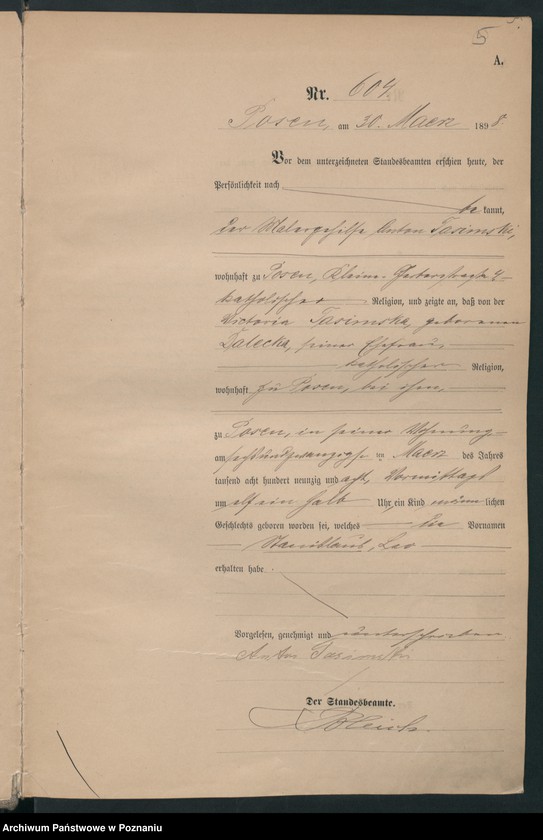 5
A.
Nr. 604.
Posen, am 30. Maerz 1898.
Vor dem unterzeichneten Standesbeamten erschien heute, der
Persönlichkeit nach
be kannt,
der Malergehilfe Anton Tasimski,
wohnhaft zu Posen, Kleine Gerberstraße 4
katholischer Religion, und zeigte an, daß von der
Victoria Tasimska, geborenen
Zalecka, seiner Ehefrau,
katholischer Religion,
wohnhaft zu Posen, bei ihm,
zu Posen, in seiner Wohnung
am sechsundzwanzigste n Maerz des Jahres
tausend acht hundert neunzig und acht, Vormittags
um elf ein halb Uhr, ein Kind männ lichen
Geschlechts geboren worden sei, welches die Vornamen
Stanislaus, Leo
erhalten habe.
Vorgelesen, genehmigt und unterschrieben
Anton Tasimski
Der Standesbeamte.
Archiwum Państwowe w Poznaniu